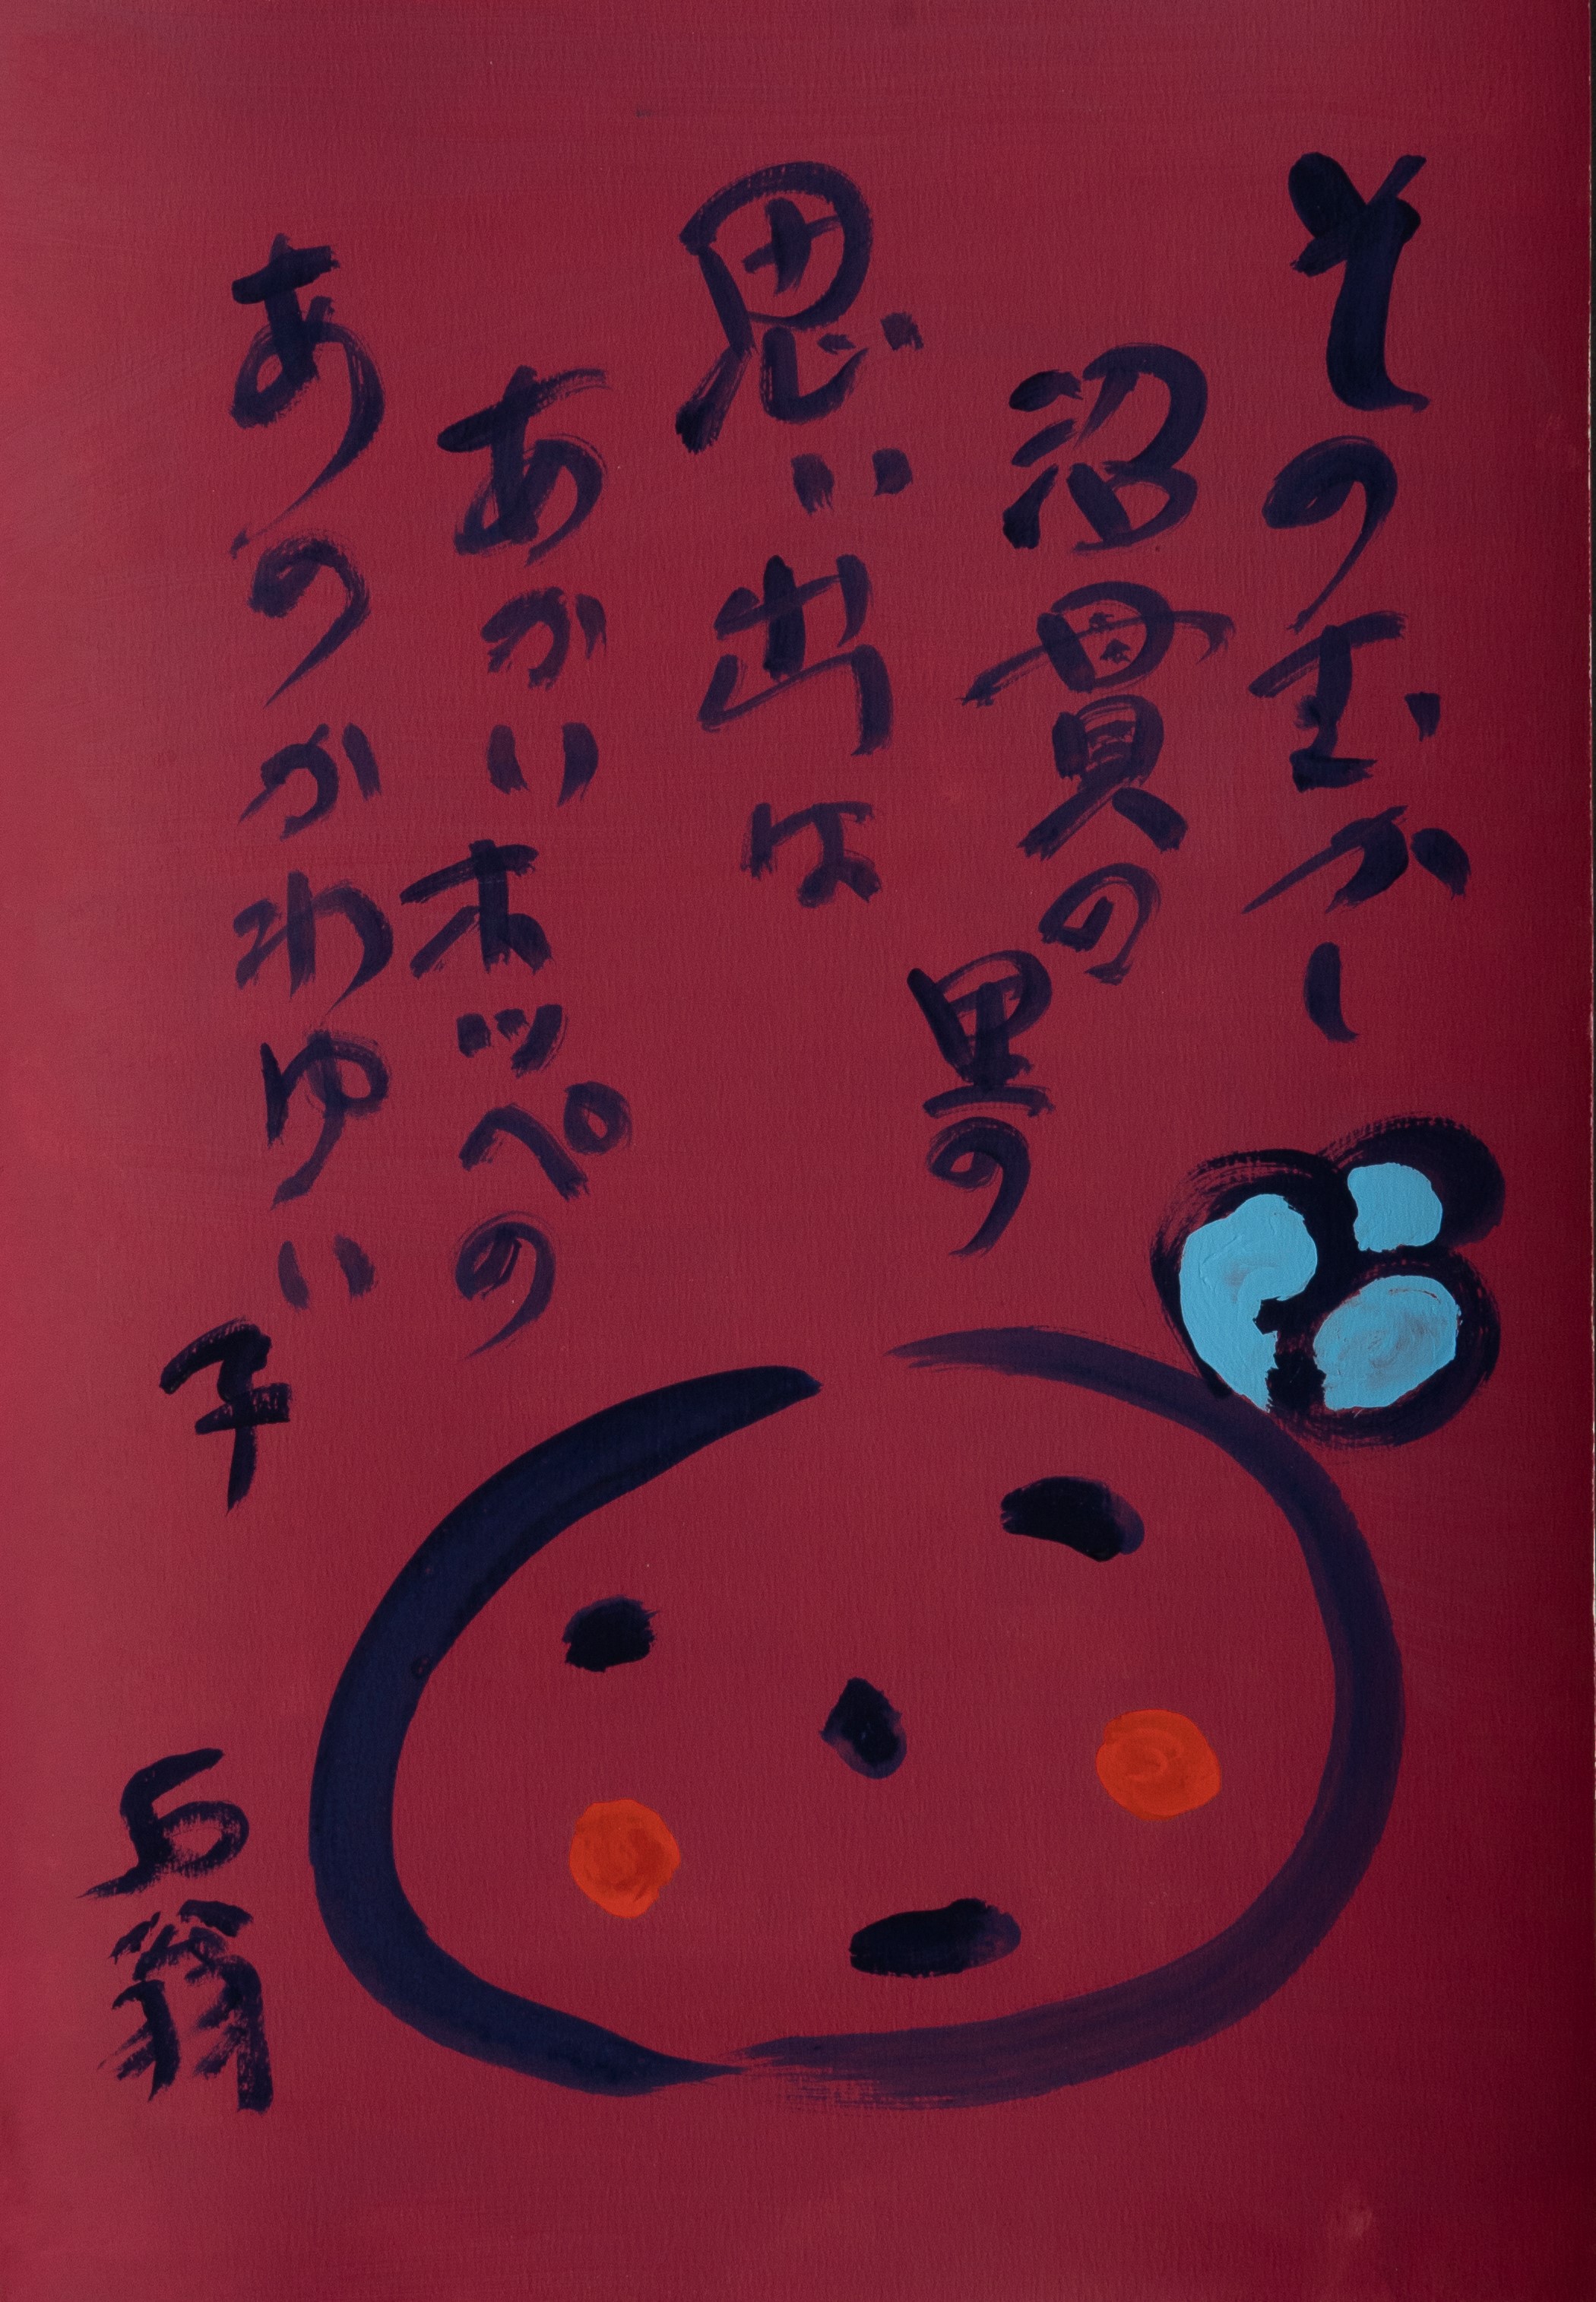 そのむかし
沼貫の里の
思い出は
あかいホッペの
あのかわゆい
子